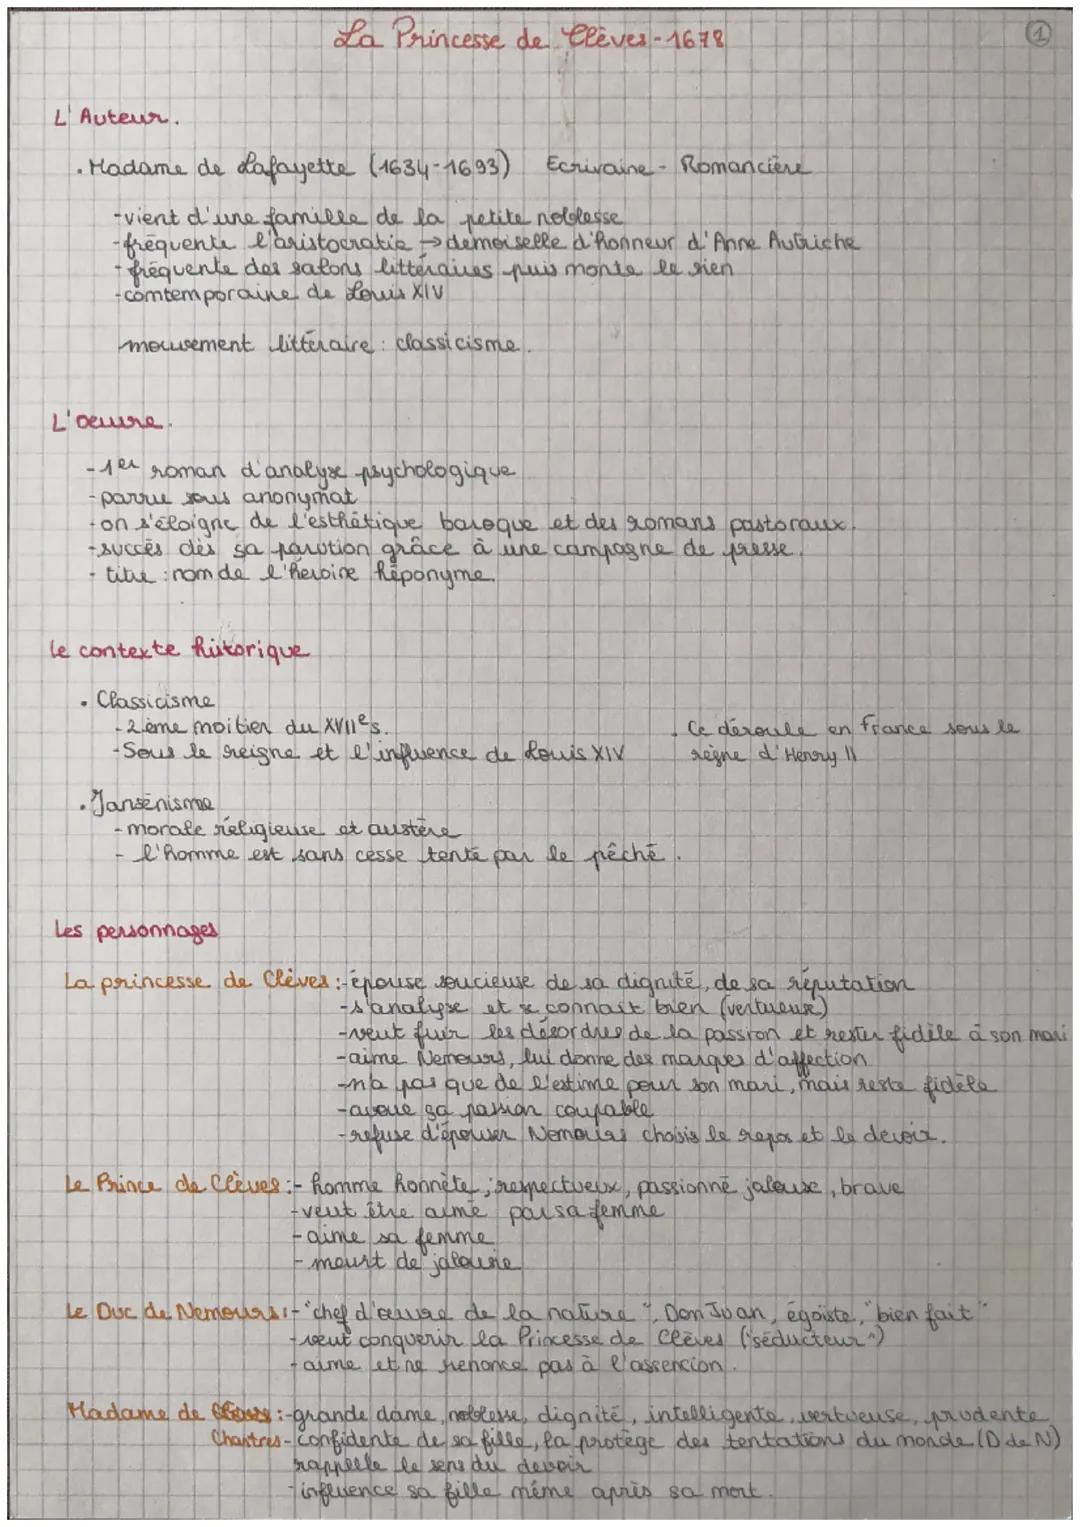 La Princesse de Clèves - 1678
1
L'Auteur.
. Madame de Lafayette (1634-1693) Ecrivaine - Romancière
- vient d'une famille de la petite noblesse
- fréquente l'aristocratie → demoiselle d'honneur d'Anne Autriche
- fréquente des salons littéraires puis monte le sien
- comtemporaine de Louis XIV
mouvement littéraire : classicisme.
L'oeuvre.
- 1er roman d'analyse psychologique
- parru sous anonymat
- on s'éloigne de l'esthétique baroque et des romans pastoraux.
- succès dès sa parution grâce à une campagne de presse.
- titre : nom de l'heroine héponyme.
Le contexte historique
. Classicisme
- 2ème moitier du XVIIe s.
- Sous le reigne et l'influence de Louis XIV
. Ce déroule en France sous le
règne d'Henry II
. Jansénisme
- morale religieuse et austère
- l'homme est sans cesse tenté par le péché.
Les personnages
La princesse de Clèves : - épouse soucieuse de sa dignité, de sa réputation
- s'analyse et se connait bien (vertueuse)
- veut fuir les désordres de la passion et rester fidèle à son mari
- aime Nemours, lui donne des marques d'affection
- n'a pas que de l'estime pour son mari, mais reste fidèle
- avoue sa passion coupable
- refuse d'épouser Nemours choisis le repos et le devoir.
Le Prince de Clèves : - homme honnête, respectueux, passionné jalouse, brave
- veut être aimé par sa femme
- aime sa femme
- meurt de jalousie
Le Duc de Nemours : - "chef d'œuvre de la nature", Don Juan, égoïste, "bien fait"
- veut conquerir la Princesse de Clèves ("séducteur")
- aime et ne renonce pas à l'assencion.
Madame de : - grande dame, noblesse, dignité, intelligente, vertueuse, prudente
Chartres - confidente de sa fille, la protège des tentations du monde (D de N)
rappelle le sens du devoir
- influence sa fille même après sa mort.